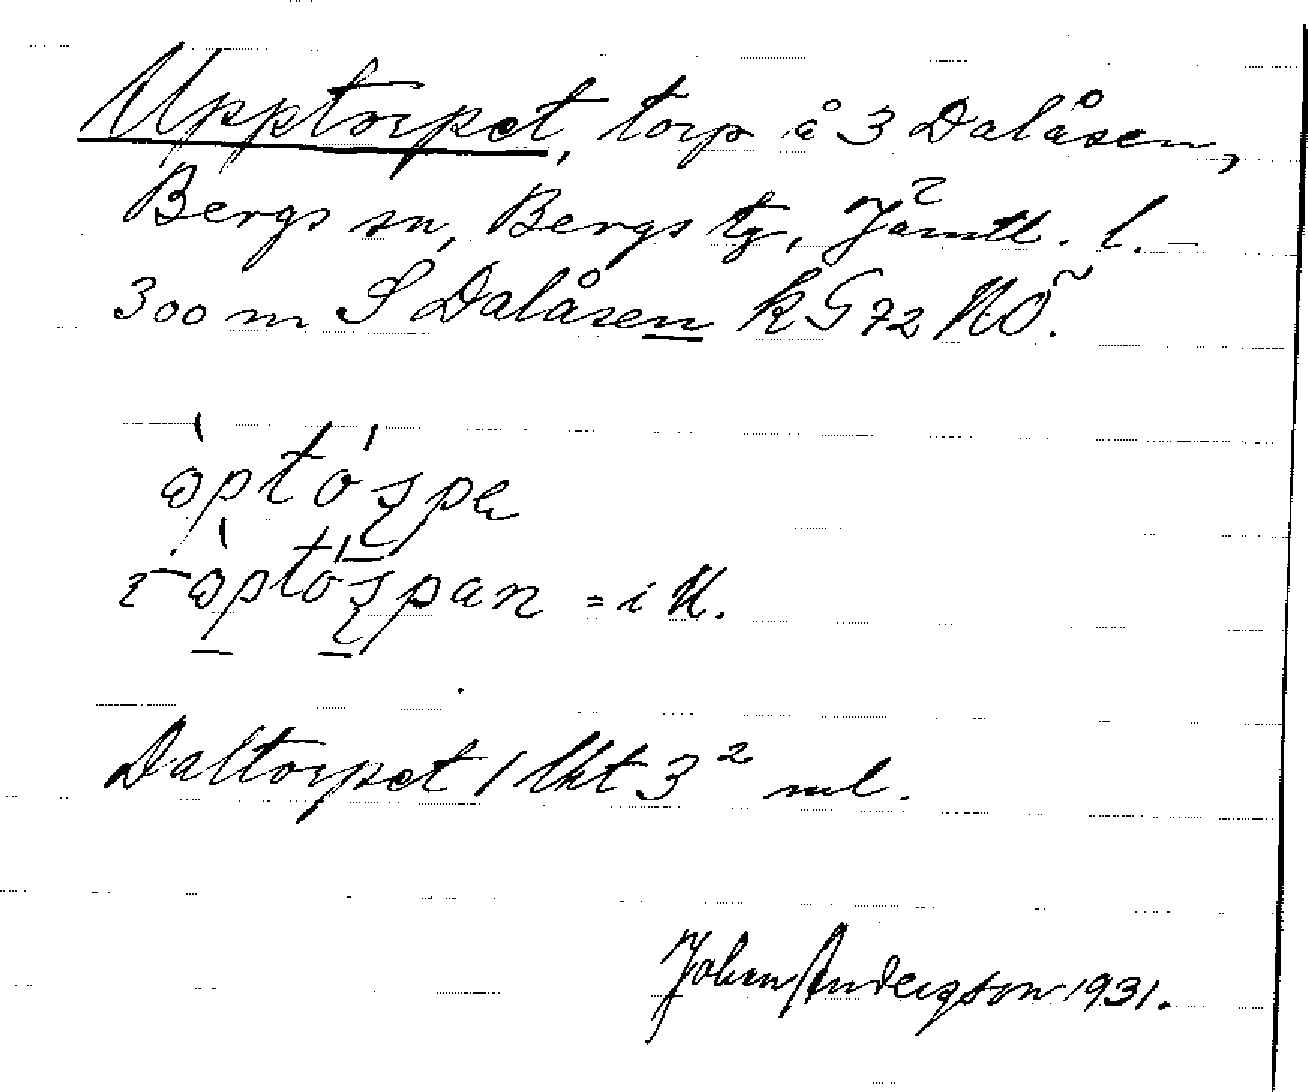 Upptorpet, torp å 3 Dalåsen,
Bergs sn, Bergs tg, Jämtl. l.
300 m S Dalåsen kG72 NÖ.
= i N.
Daltorpet / lkt 3² ml.
Johan Anderson 1931.